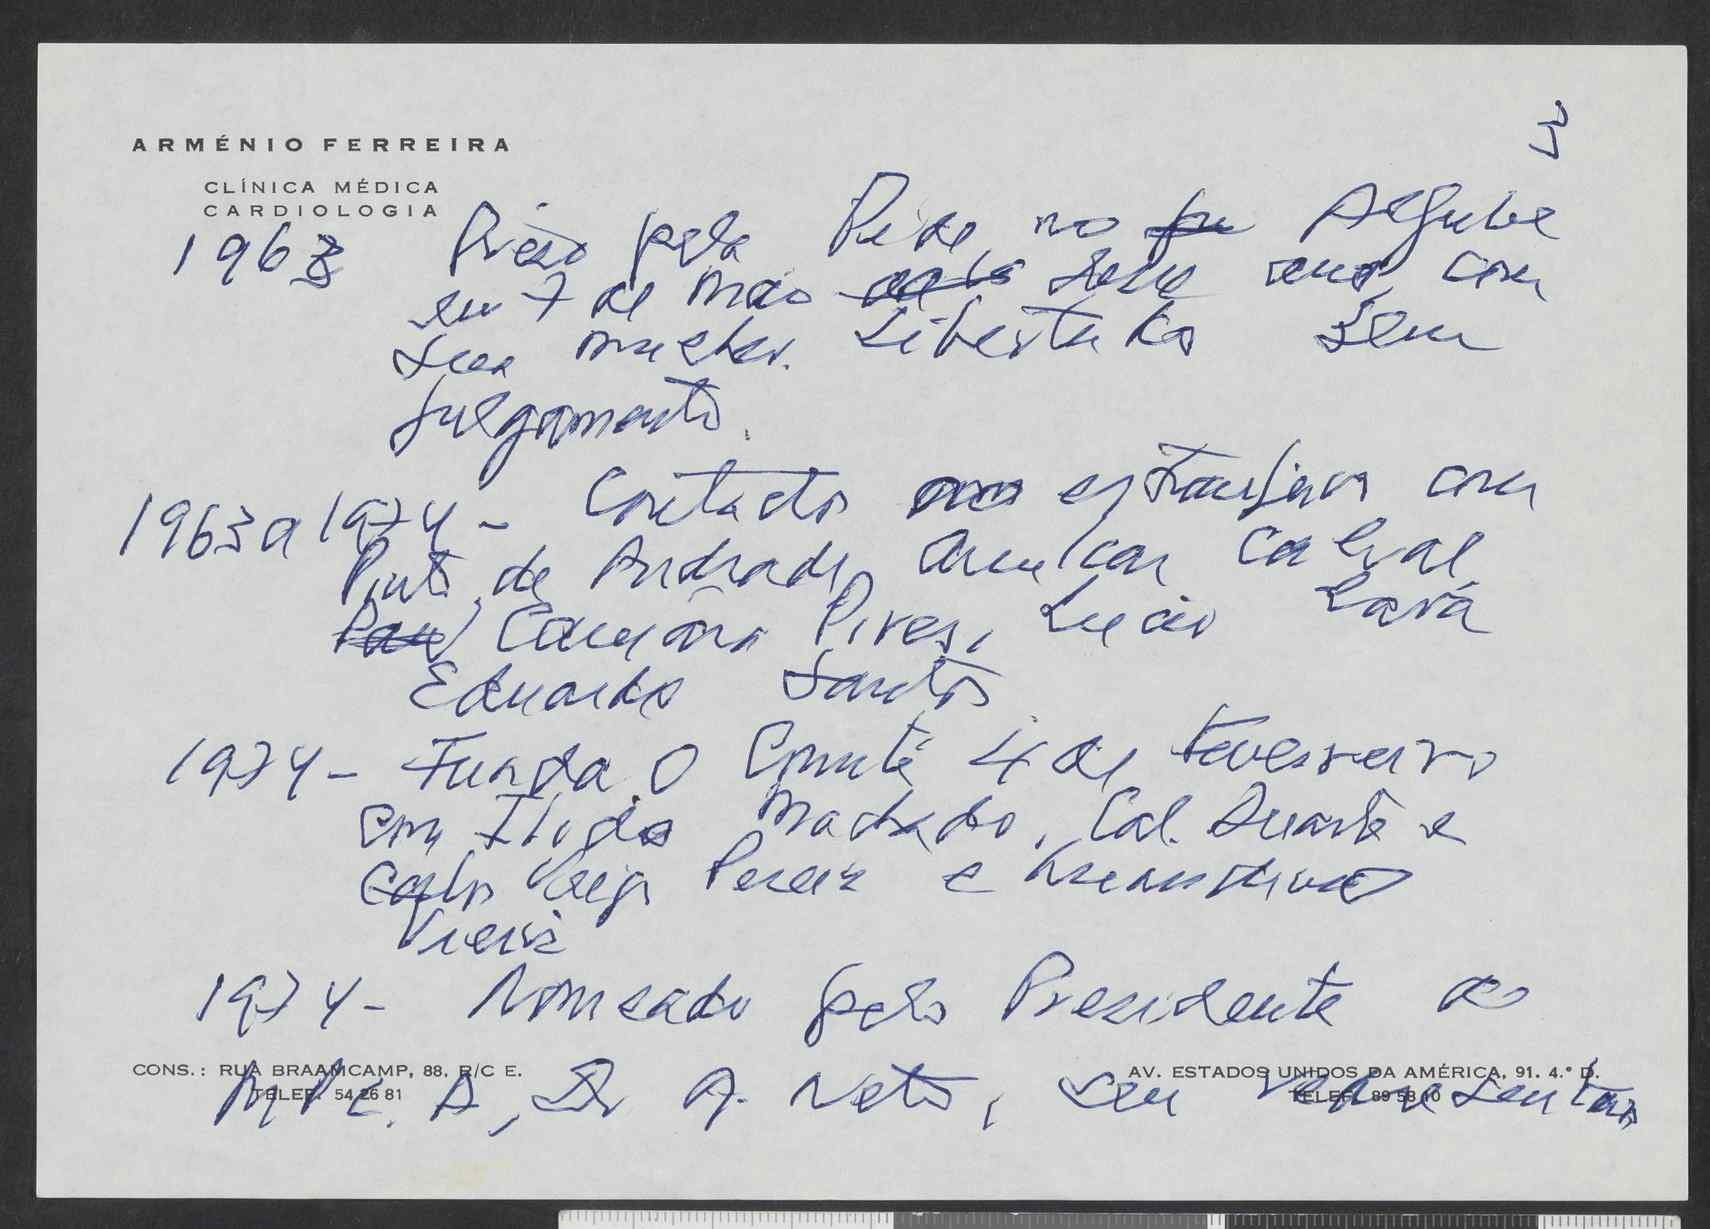 3
ARMÉNIO FERREIRA
CLÍNICA MÉDICA
CARDIOLOGIA
1963 Preso pela Pide, no Aljube
em 7 de Maio desse ano, com
sua mulher. Libertados sem
julgamento.
1963 a 1974 - Contactos estrangeiro com
Pinto de Andrade, Amilcar Cabral,
Câmara Pires, Lucio Lara
Eduardo Santos
1974 - Funda o Comité 4 de Fevereiro
com Ilidio Machado, Cal. Duarte e
Carlos Veiga Pereira e
Vieira
1974 - Nomeado pelo Presidente do
M.P.L.A, Dr A. Neto, seu representante
CONS.: RUA BRAAMCAMP, 88, R/C E.
TELEF. 54 26 81
AV. ESTADOS UNIDOS DA AMÉRICA, 91. 4.º D.
TELEF. 89 58 10